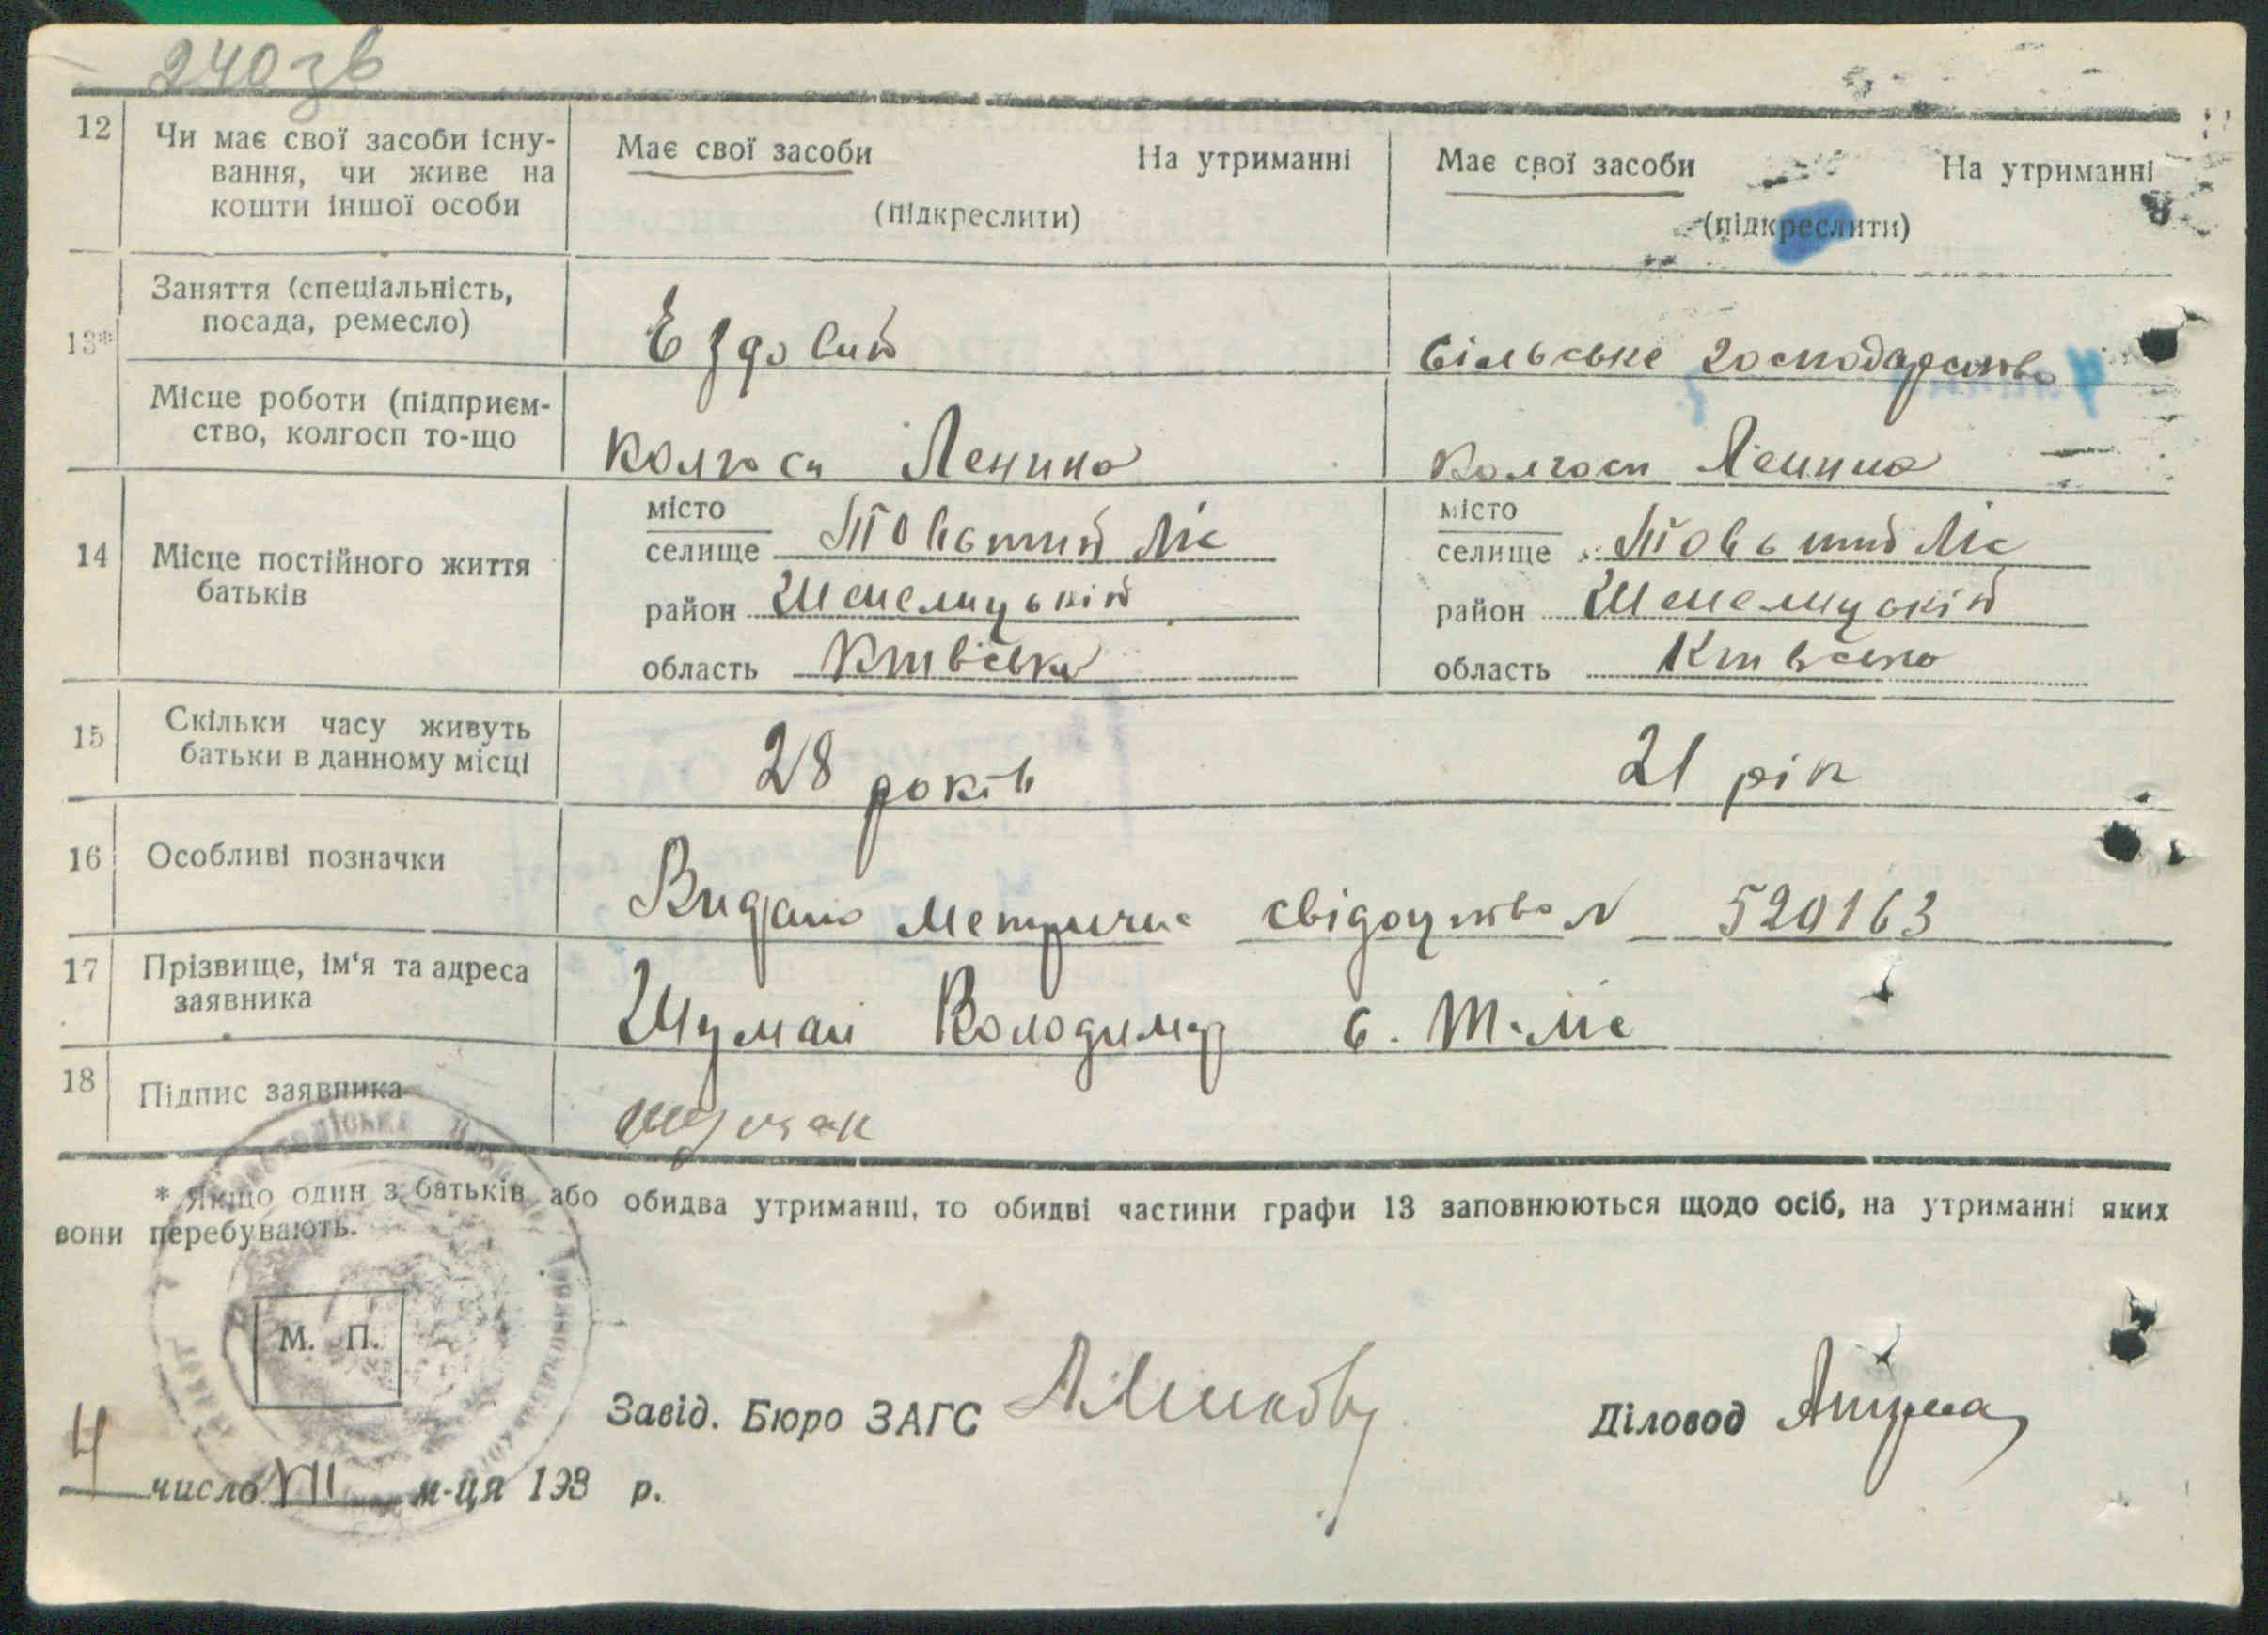 240зв
12 Чи має свої засоби існу- Має свої засоби На утриманні Має свої засоби На утриманні
вання, чи живе на
кошти іншої особи (підкреслити) (підкреслити)
13* Заняття (спеціальність,
посада, ремесло) Ездовий Сільське господарство
Місце роботи (підприєм-
ство, колгосп то-що Колгосп Ленина Колгосп Леніна
14 Місце постійного життя
батьків
місто місто
селище Товстий Ліс селище Товстий Ліс
район Шепелицькій район Шепелицькій
область Київська область Київська
15 Скільки часу живуть
батьки в данному місці 28 років 21 рік
16 Особливі позначки Видано метричне свідоцтво N 520163
17 Прізвище, ім'я та адреса
заявника Шуман Володимир с. Т-Ліс
18 Підпис заявника Шуман
* Якщо один з батьків або обидва утриманці, то обидві частини графи 13 заповнюються щодо осіб, на утриманні яких
вони перебувають.
М. П.
Завід. Бюро ЗАГС Діловод
4 число VII м-ця 193 р.